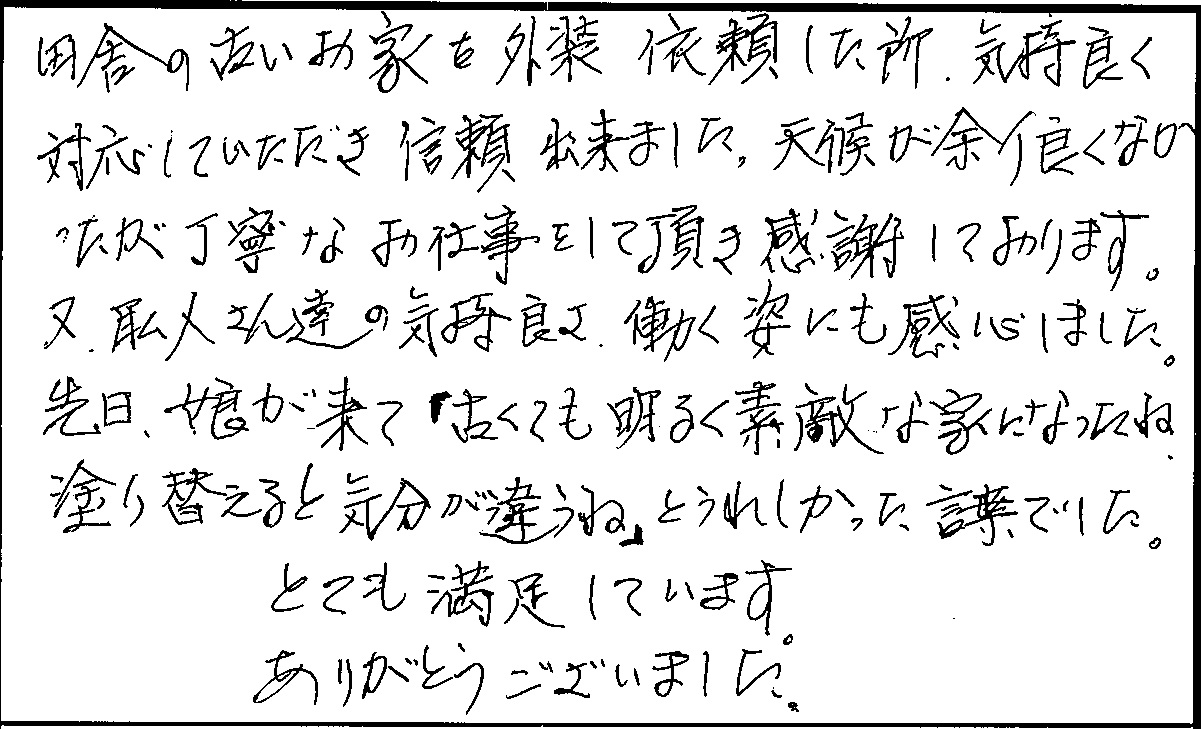 田舎の古いお家を外装 依頼した所、気持良く
対応していただき 信頼 出来ました。天候が余り良くなか
ったが丁寧な お仕事をして頂き感謝しております。
又、職人さん達の気持良さ、働く姿にも感心しました。
先日、娘が来て「古くても明るく素敵な家になったね、
塗り替えると気分が違うね」とうれしかった言葉でした。
とても満足しています。
ありがとうございました。